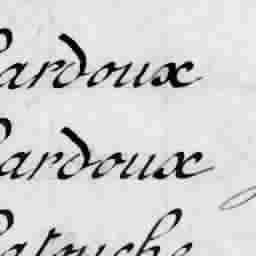 Lardoux
Lardoux
Latouche